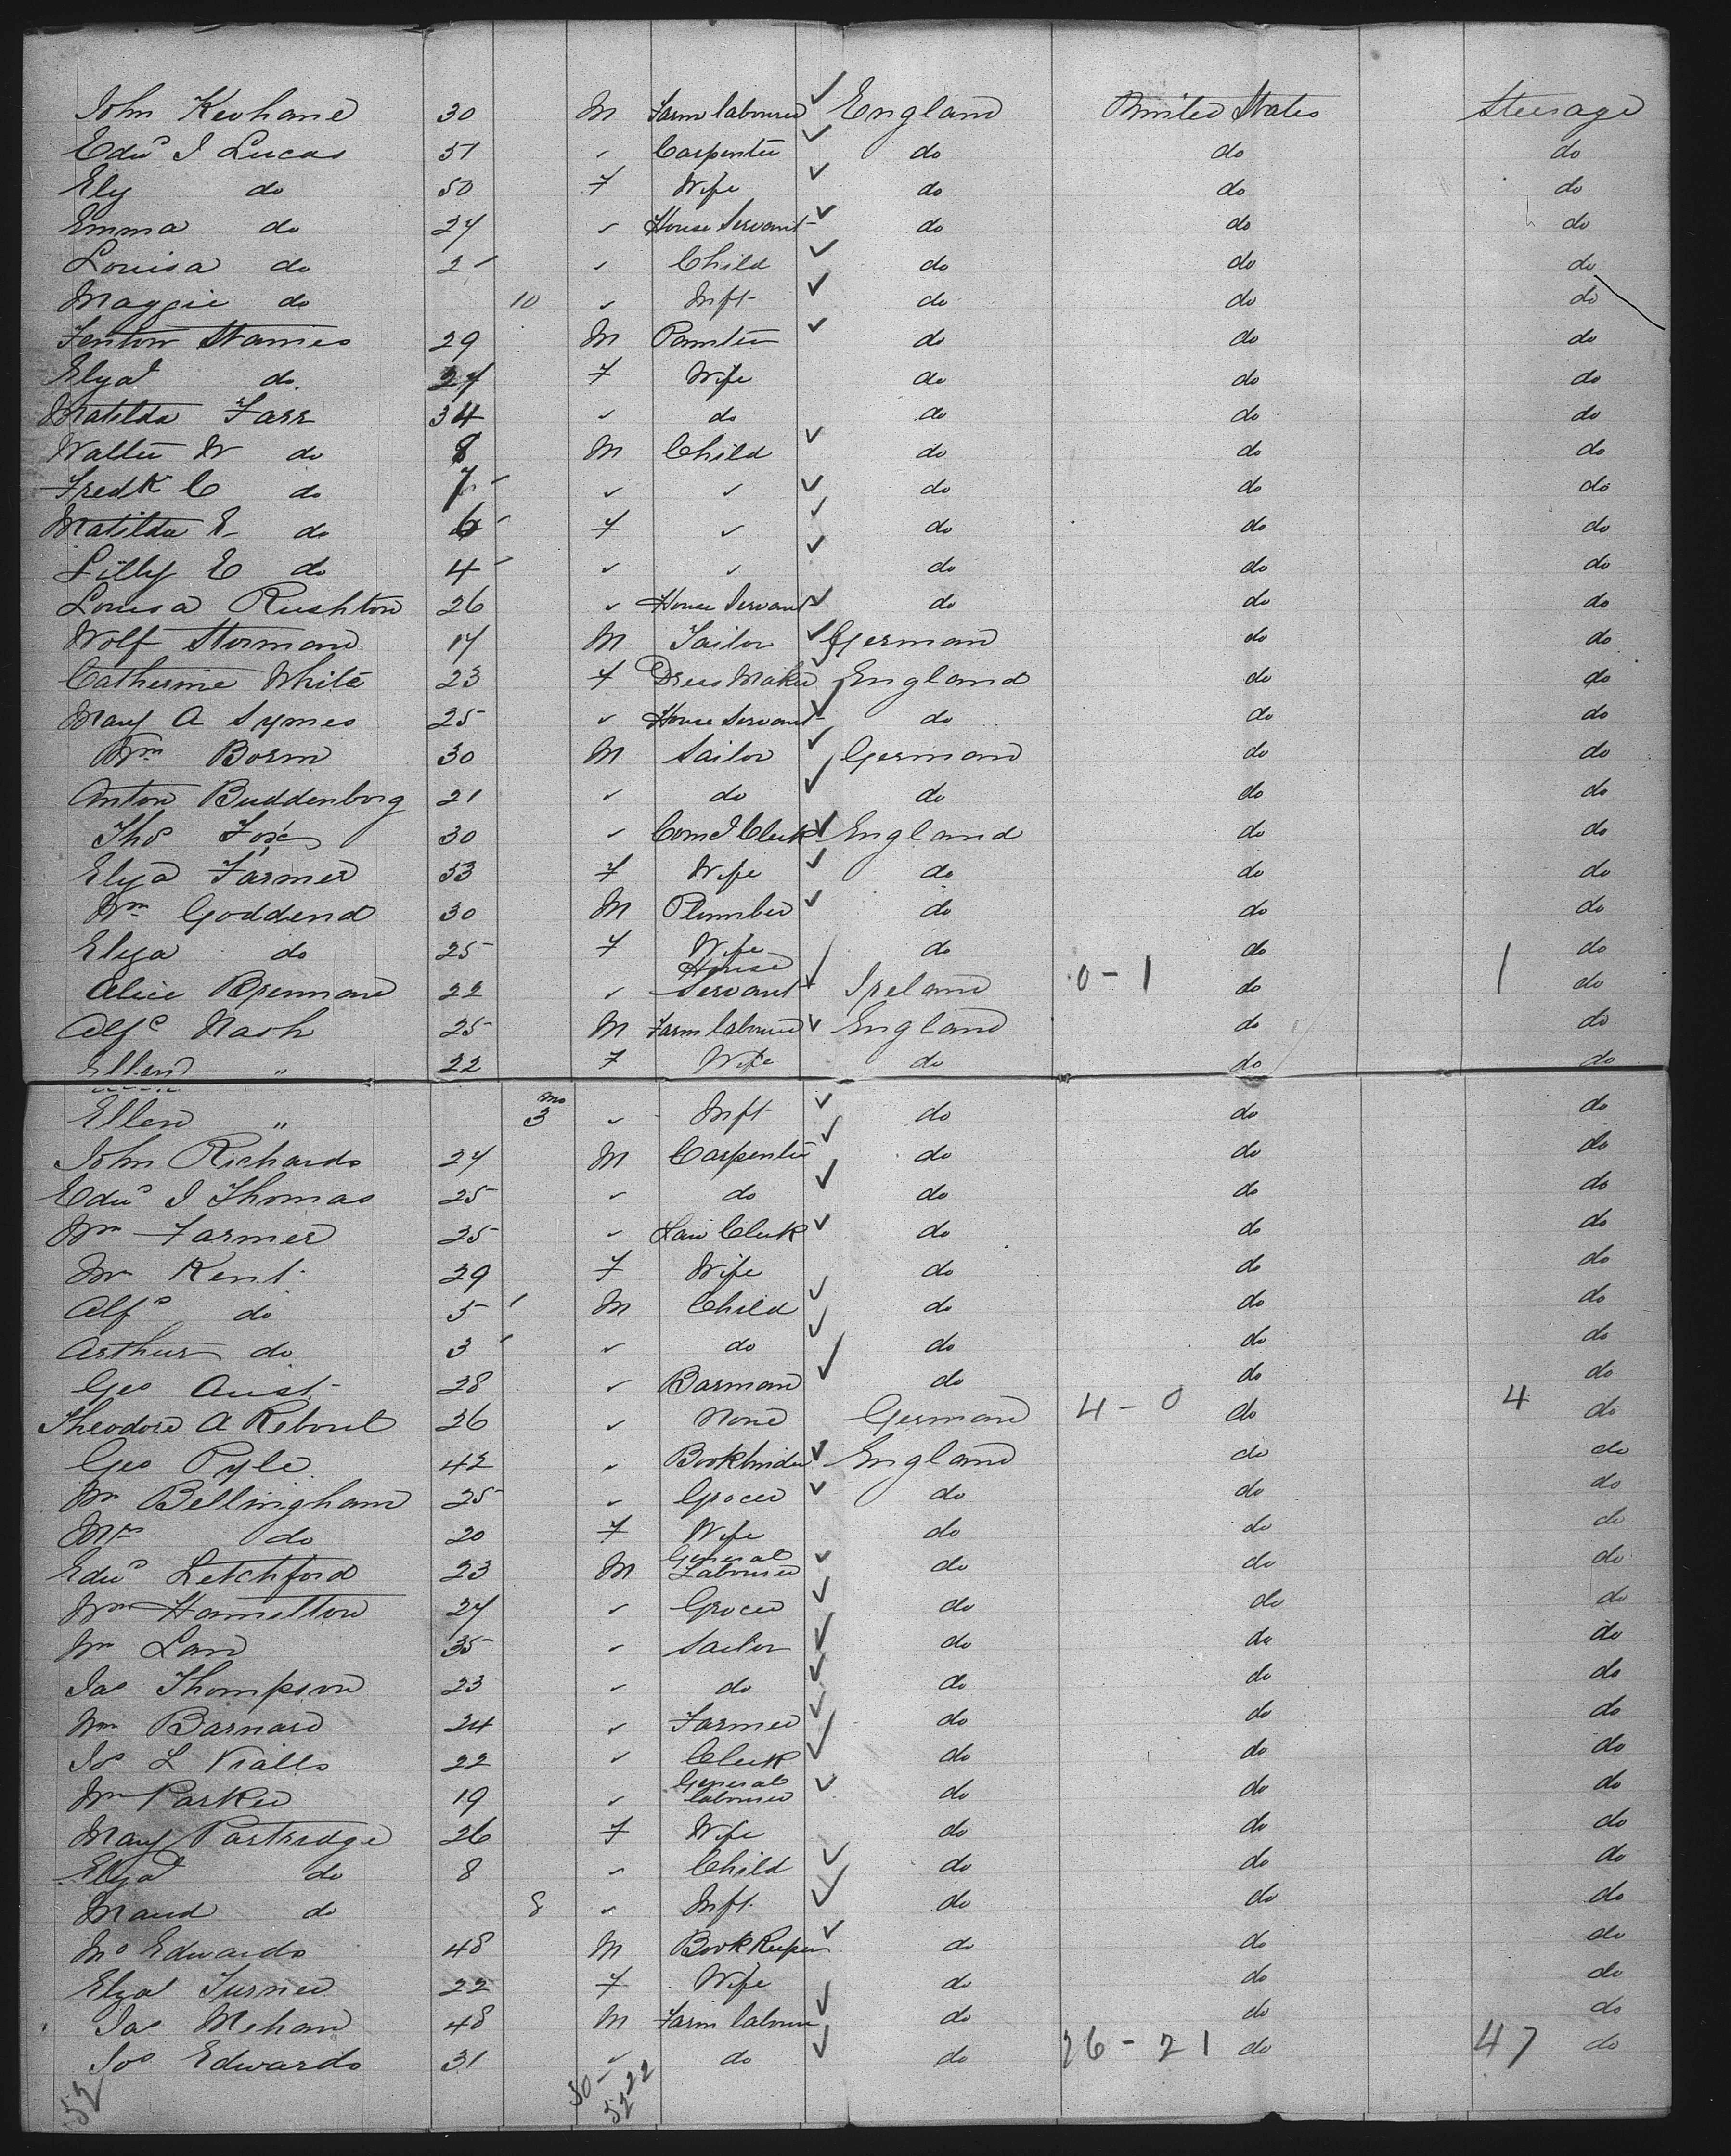 John Keohane 30 M Farm labourer ✓ England United States Steerage
Edwd J Lucas 51 " Carpenter ✓ do do do
Ely do 50 F Wife ✓ do do do
Emma do 27 " House Servant ✓ do do do
Louisa do 2 " Child ✓ do do do
Maggie do 10 " Inft ✓ do do do
Fenton 29 M Painter ✓ do do do
Elza do 27 F Wife do do do
Matilda Farr 34 " do do do do
Walter W do 8 M Child ✓ do do do
Fredk C do 7 " " ✓ do do do
Matilda E do 6 F " ✓ do do do
Lilly E do 4 " " ✓ do do do
Louisa Rushton 26 " House Servant ✓ do do do
Wolf Storman 17 M Tailor ✓ German do do
Catherine White 23 F Dress Maker England do do
Mary A Symes 25 " House Servant ✓ do do do
Wm Borm 30 M Sailor ✓ German do do
Anton Buddenborg 21 " do ✓ do do do
Thos Fox 30 " Coml Clerk ✓ England do do
Elza Farmer 33 F Wife ✓ do do do
Wm Goddend 30 M Plumber ✓ do do do
Elza do 25 F Wife do do do
Alice Brennan 22 " House Servant ✓ Ireland 0-1 do 1 do
Alfd Nash 25 M Farm labourer ✓ England do do
Ellen " 22 F Wife do do do
Ellen " 3 mo " Inft ✓ do do do
John Richards 27 M Carpenter ✓ do do do
Edwd J Thomas 25 " do ✓ do do do
Wm Farmer 25 " Law Clerk ✓ do do do
Kent 29 F Wife do do do
Alfd do 5 M Child ✓ do do do
Arthur do 3 " do ✓ do do do
Geo Aust 28 " Barman ✓ do do do
Theodore A Reboul 26 " None German 4-0 do 4 do
Geo Pyle 42 " Bookbinder ✓ England do do
Wm Bellingham 25 " Grocer ✓ do do do
Mrs do 20 F Wife do do do
Edwd Letchford 23 M General Labourer ✓ do do do
Wm Hamilton 27 " Grocer ✓ do do do
Wm Law 35 " Sailor ✓ do do do
Jas Thompson 23 " do ✓ do do do
Wm Barnard 24 " Farmer ✓ do do do
Js L Vialls 22 " Clerk ✓ do do do
Wm Parker 19 " General labourer ✓ do do do
Mary Partridge 26 F Wife do do do
Elza do 8 " Child ✓ do do do
Maud do 8 " Inft ✓ do do do
Edwards 48 M Book Keeper ✓ do do do
Elza Turner 22 F Wife do do do
Jas Mehan 48 M Farm labourer ✓ do do do
Jos Edwards 31 " do ✓ do 26-21 do 47 do
52 30-22
52